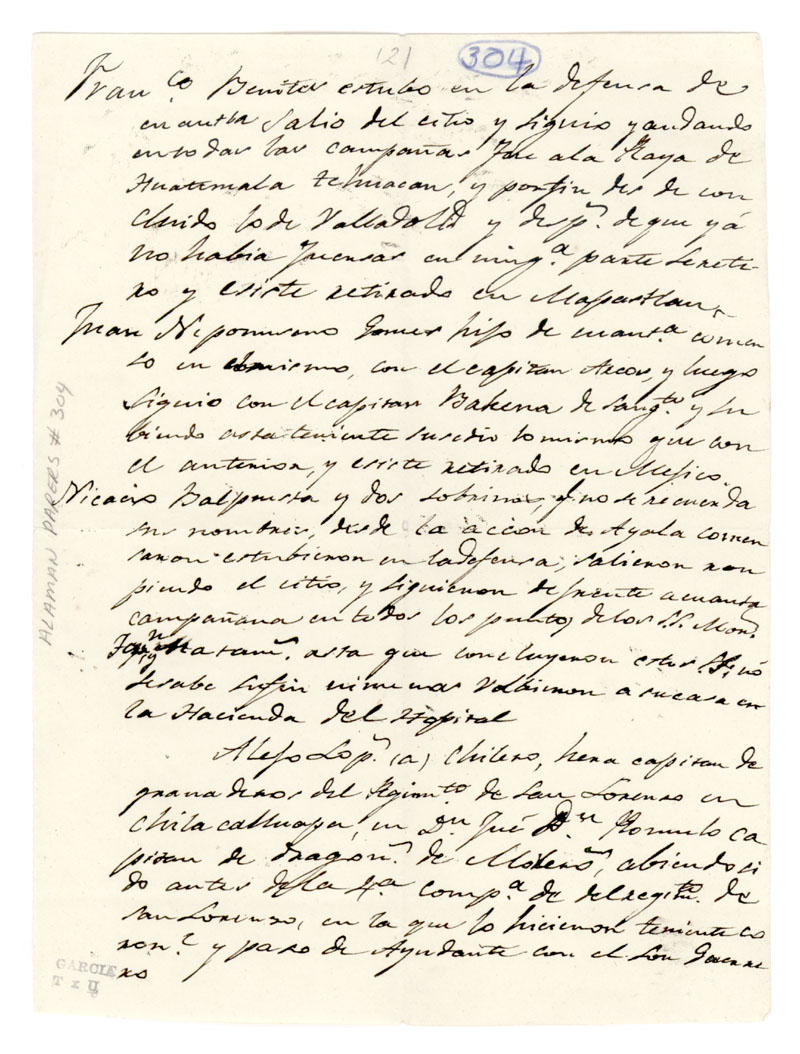 121 304
Fran.co Benites estubo en la defensa de
cuautla Salio del citio y siguio y andando
en todas las campañas fue ala Raya de
Huatemala tehuacan, y por fin des de con
cluido lo de Valladolid y desp.s de que yá
no habia fuersas en ning.a parte se reti
ro y esiste retirado en Mapastlan
Juan Nepomuseno Gomes hijo de cuaut.a comen
so en el mismo, con el capitan Arcos, y luego
siguio con el capitan Bahena de sarg.to y su
biendo asta teniente susedio lo mismo que con
el anterior, y esiste retirado en Mejico.
Nicacio Balpuesta y dos sobrinos, q.e no se recuerda
sus nombres, desde la accion de Ayala comen
saron estubieron en la defensa, salieron rom
piendo el citio, y siguieron de frente a cuanta
campaña en todos los puntos de los S.S. Mor.s
y Matam.s asta que concluyeron estos S.S. nó
se sabe su fin ni menos volbieron a su casa en
la Hacienda del Hospital
Alejo Lop.s (a) Chilero, hera capitan de
granaderos del Regim.to de San Lorenzo en
Chilacalluapa, en D.n Jué D.n Romulo ca
pitan de dragon.s de Moreno, abiendo si
do antes de la 4.a comp.a de del regim.to de
san Lorenso, en la que lo hicieron teniente co
ron.l y paso de Ayudante con el Sor Guerre
ro
ALAMAN PAPERS # 304
GARCIA